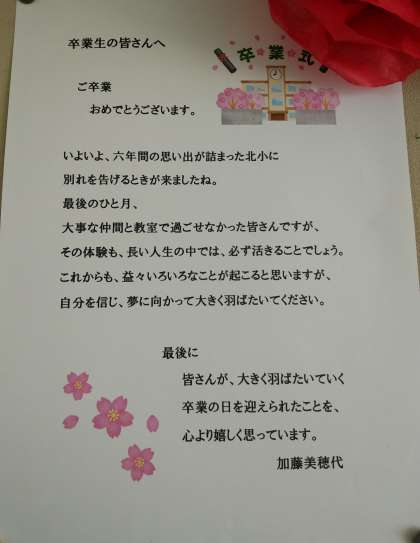 卒業生の皆さんへ
卒業式
ご卒業
おめでとうございます。
いよいよ、六年間の思い出が詰まった北小に
別れを告げるときが来ましたね。
最後のひと月、
大事な仲間と教室で過ごせなかった皆さんですが、
その体験も、長い人生の中では、必ず活きることでしょう。
これからも、益々いろいろなことが起こると思いますが、
自分を信じ、夢に向かって大きく羽ばたいてください。
最後に
皆さんが、大きく羽ばたいていく
卒業の日を迎えられたことを、
心より嬉しく思っています。
加藤美穂代